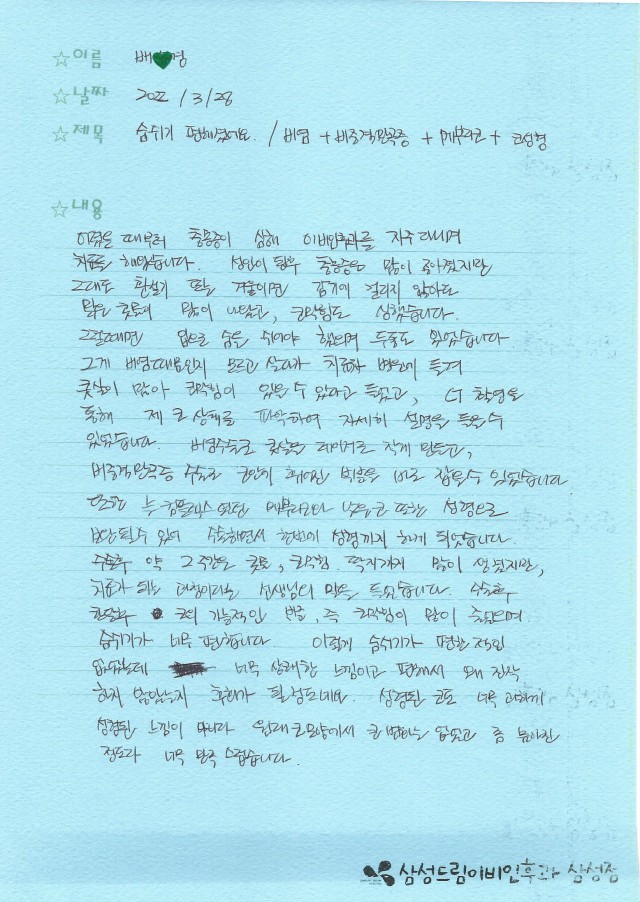 ☆이름 배♥경
☆날짜 2022 / 3 / 28
☆제목 숨쉬기 편해졌어요. / 비염 + 비중격만곡증 + 매부리코 + 코성형
☆내용
어렸을 때부터 축농증이 심해 이비인후과를 자주 다니며
치료를 해왔습니다. 성인이 된후 축농증은 많이 좋아졌지만
그래도 환절기 또는 겨울이면 감기에 걸리지 않아도
맑은 콧물이 많이 나왔고, 코막힘도 심했습니다.
그럴때면 입으로 숨을 쉬어야 했으며 두통도 있었습니다
그게 비염때문인지 모르고 살다가 치료차 병원에 들려
콧살이 많아 코막힘이 있을 수 있다고 들었고, CT 촬영을
통해 제 코 상태를 파악하여 자세히 설명을 들을 수
있었습니다. 비염수술로 콧살을 레이저로 작게 만들고,
비중격만곡증 수술로 코안에 휘어진 부분을 바로 잡을 수 있었습니다
또한 늘 컴플렉스 였던 매부리코와 낮은 코 또한 성형으로
보완 될 수 있어 수술하면서 한번에 성형까지 하게 되었습니다.
수술후 약 2주간은 콧물, 코막힘, 딱지까지 많이 생겼지만,
치료가 되는 과정이라는 선생님의 말을 들었습니다. 수술후
한달후 코의 기능적인 부분, 즉 코막힘이 많이 줄었으며
숨쉬기가 너무 편합니다 이렇게 숨쉬기가 편한 적이
없었는데 너무 상쾌한 느낌이고 편해서 왜 진작
하지 않았는지 후회가 될 정도네요. 성형된 코도 너무 과하게
성형된 느낌이 아니라 원래 코모양에서 큰 변화는 없었고 좀 높아진
정도라 너무 만족 스럽습니다.
삼성드림이비인후과 삼성점